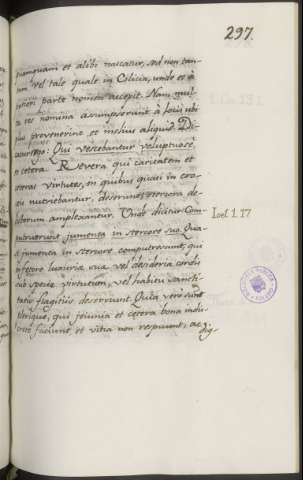 297.
numquam et alibi nascatur, sed non tan-
tum vel tale quale in Cilicia, unde et à
parte nomen accepit. Nam mul-
ta res nomina assumpserunt à locis ubi
plus provenerint et melius aliquid. Di-
Qui vescebantur voluptuosè,
et cetera. Revera qui caritatem et
ceteras virtutes, in quibus quasi in cro-
ceis nutriebantur, deserunt, stercora de-
amplexantur. Unde dicitur Com-
putruerunt jumenta in stercore suo. Qua-
si jumenta in stercore computrescunt, qui
in fetore luxuriæ sua vel desideria cordis
sub specie virtutum, vel habitu sancti-
tatis flagitiis deserviunt. Quia verò sunt
plerique, qui jejunia et cetera bona indis-
cretè faciunt et vitia non respuunt, ac
dig-
Ioel. 1. 17